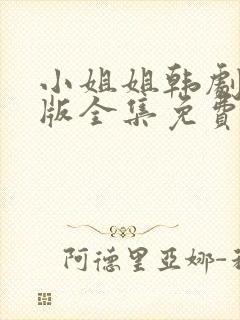 小姐姐韩劇
版全集免費
阿德里亚娜-